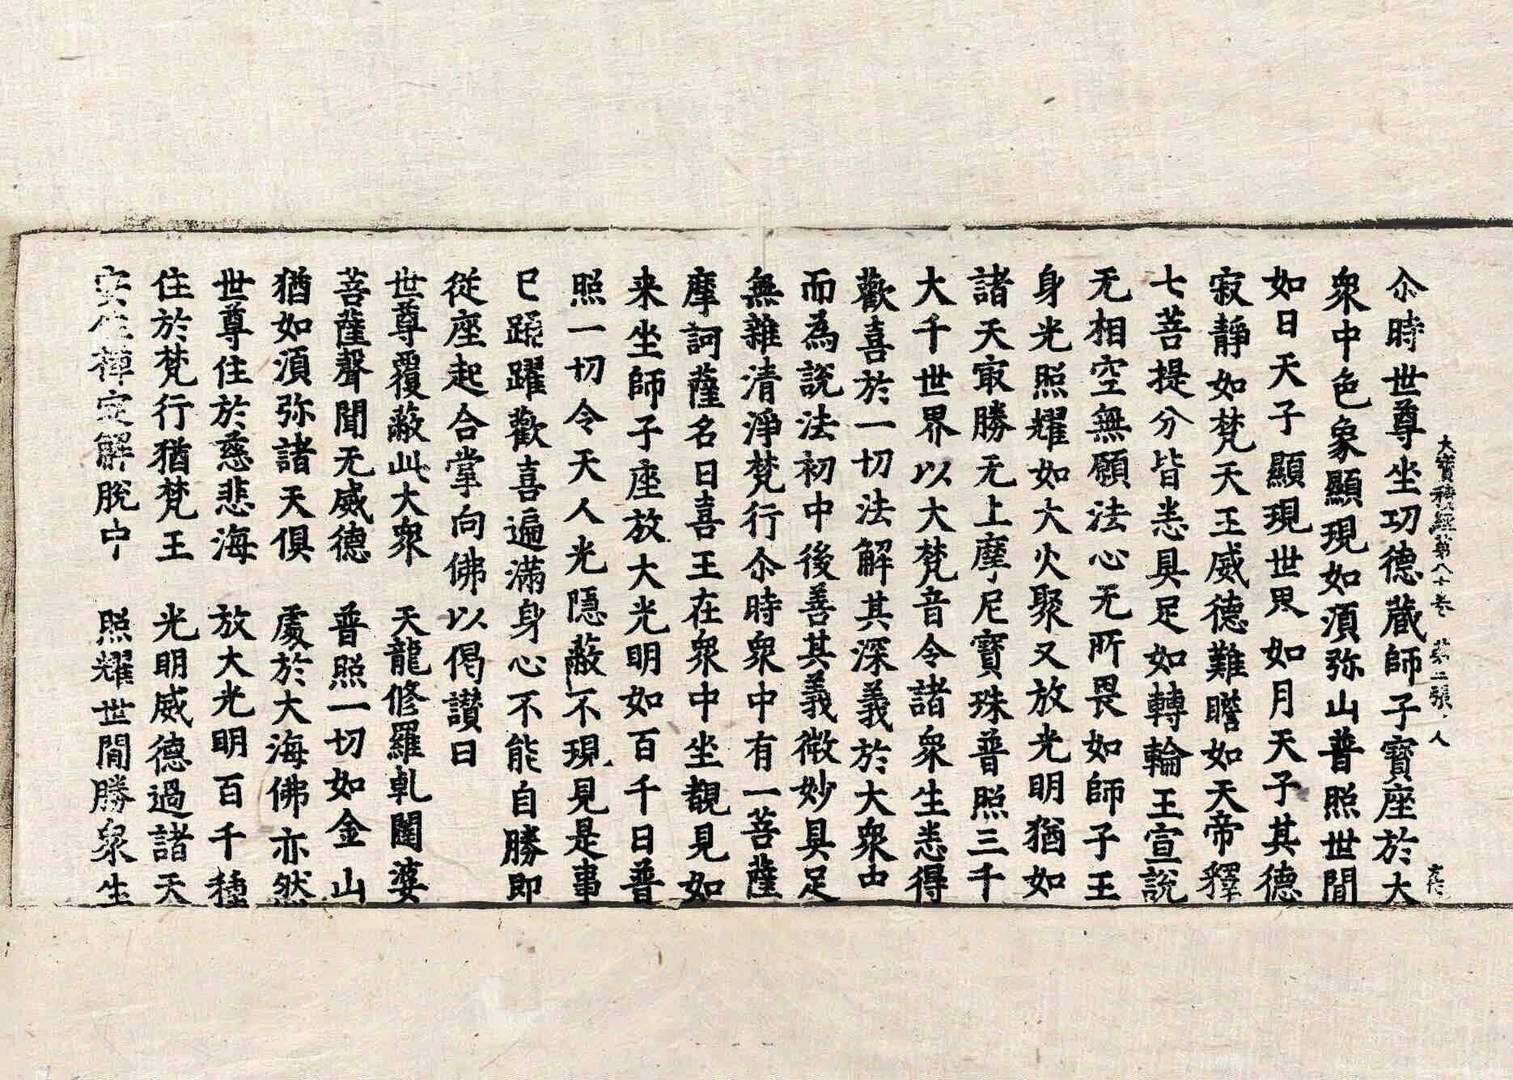 大寶積經第八十卷 苐二張 人
尒時世尊坐功德蔵師子寶座於大
衆中色象顯現如湏弥山普照世間
如日天子顯現世界如月天子其德
寂靜如梵天王威德難瞻如天帝釋
七菩提分皆悉具足如轉輪王宣説
无相空無願法心无所畏如師子王
身光照耀如大火聚又放光明猶如
諸天㝡勝无上摩尼寶珠普照三千
大千世界以大梵音令諸衆生悉得
歡喜於一切法解其深義於大衆中
而為説法初中後善其義微妙具足
無雜清淨梵行尒時衆中有一菩薩
摩訶薩名曰喜王在衆中坐觀見如
来坐師子座放大光明如百千日普
照一切令天人光隱蔽不現見是事
已踊躍歡喜遍滿身心不能自勝即
従座起合掌向佛以偈讃曰
世尊覆蔽此大衆 天龍修羅乹闥婆
菩薩聲聞无威德 普照一切如金山
猶如湏弥諸天俱 處於大海佛亦然
世尊住於慈悲海 放大光明百千種
住於梵行猶梵王 光明威德過諸天
安住禪定解脫中 照耀世間勝衆生